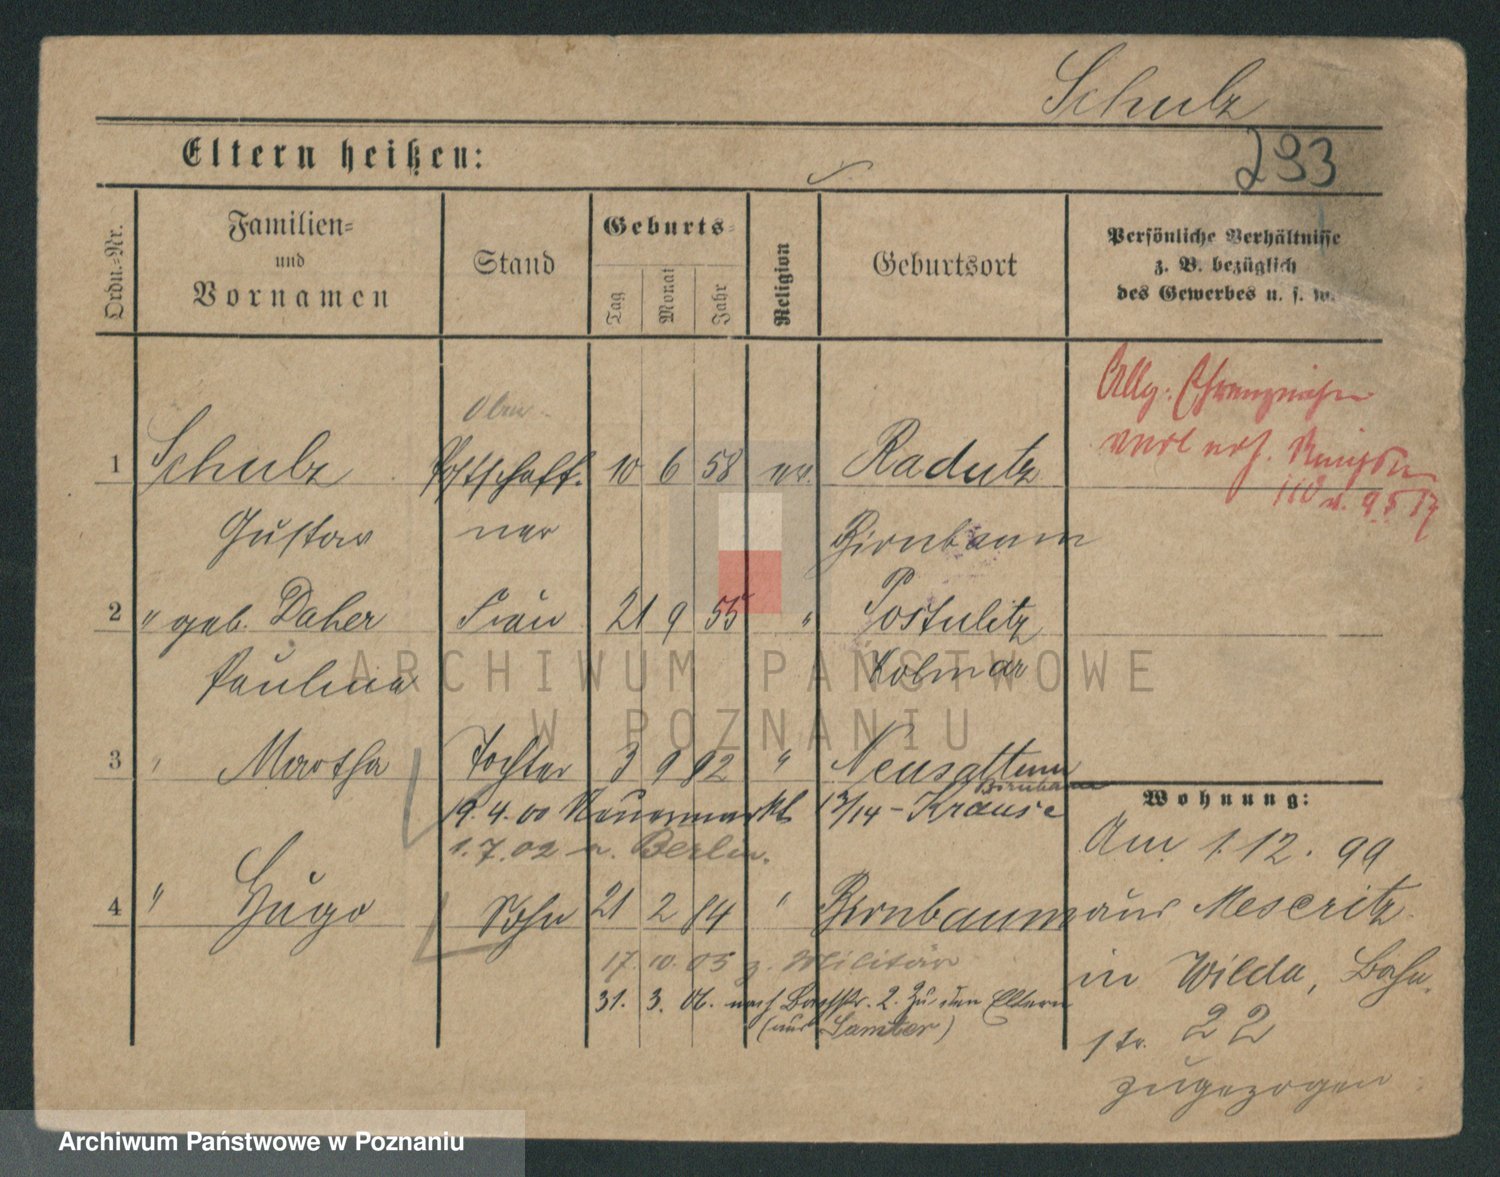 Schulz
293
Eltern heißen:
Ordn.-Nr.
Familien-
und
Vornamen
Stand
Geburts-
Tag
Monat
Jahr
Religion
Geburtsort
Persönliche Verhältnisse
z. B. bezüglich
des Gewerbes u. s. w.
Allg.
Ober-
1 Schulz Postschaff- 10 6 58 ev. Radutz
Gustav ner Birnbaum
2 " geb. Daher Frau 21 9 55 " Postulitz
Pauline Kolmar
3 " Martha Tochter 3 9 82 " Neusattum
Birnbaum
19.4.00 13/14 - Krause
1.7.02 n. Berlin.
4 " Hugo Sohn 21 2 84 " Birnbaum
17. 10. 03 z. Militär
31. 3. 06. nach 2. zu den Eltern
(aus Samter)
Wohnung:
Am 1.12.99
aus Meseritz
in Wilda, Bahn-
str. 22
zugezogen
ARCHIWUM PAŃSTWOWE
W POZNANIU
Archiwum Państwowe w Poznaniu